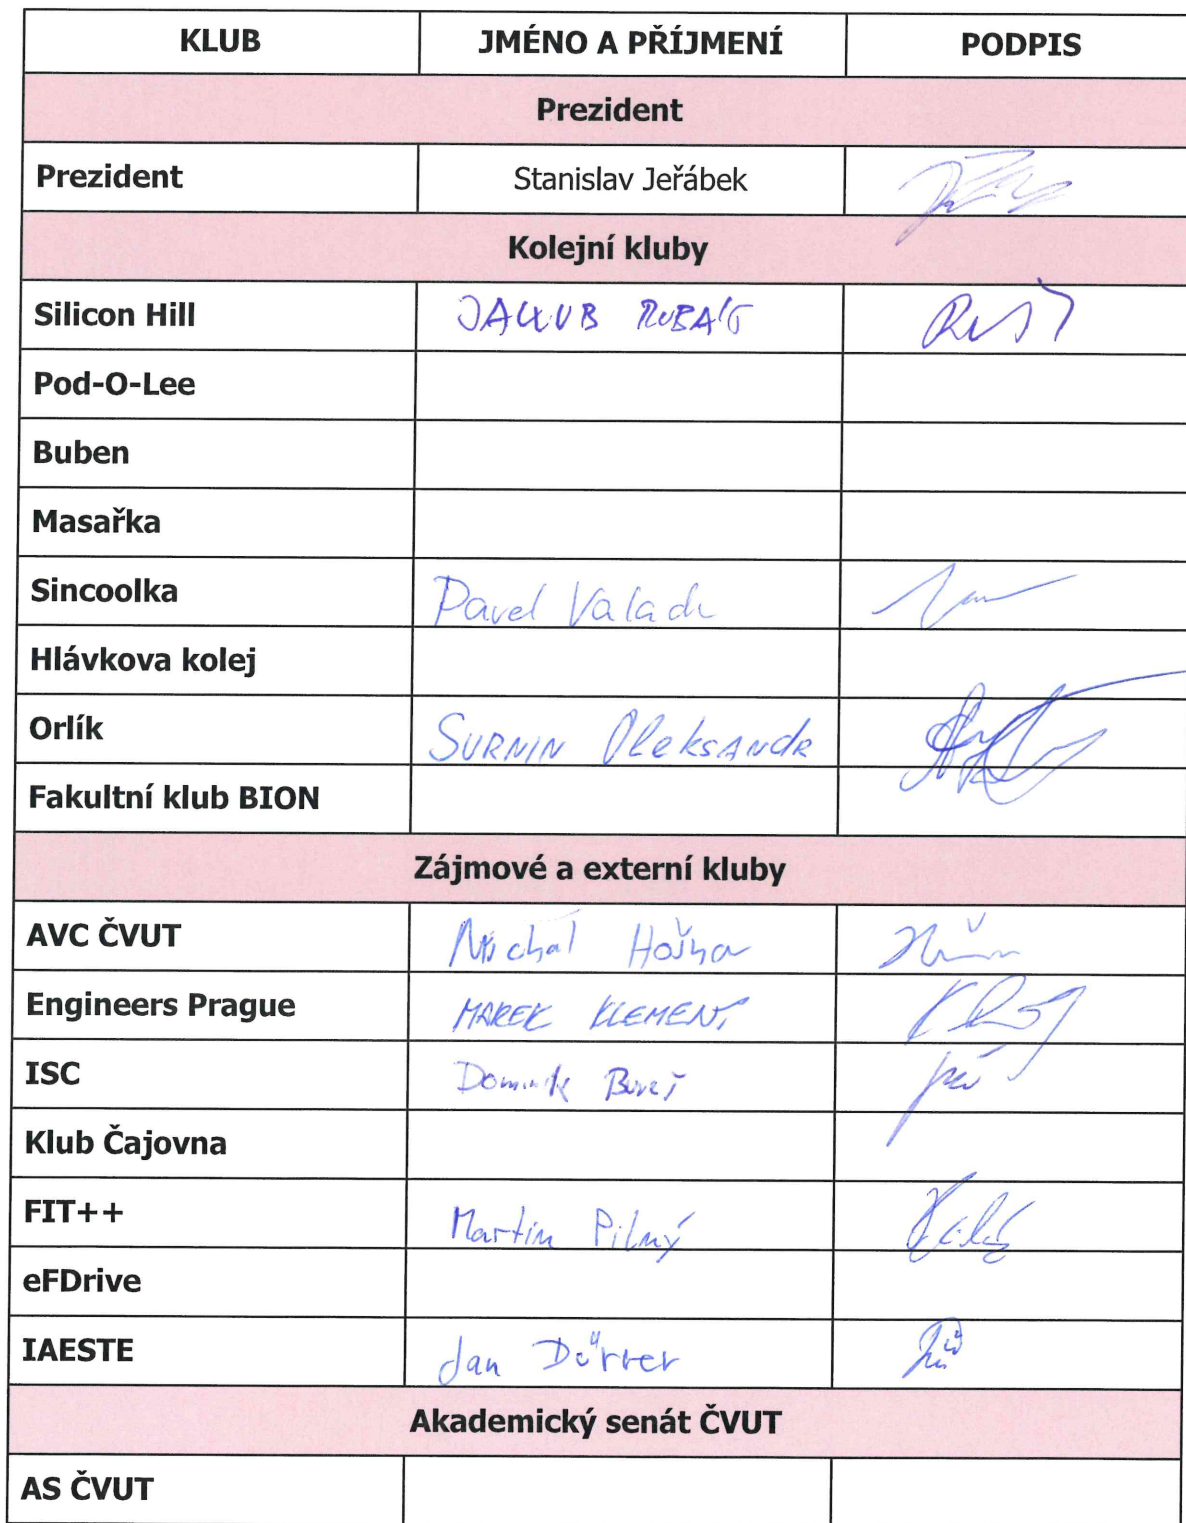 KLUB JMÉNO A PŘÍJMENÍ PODPIS
Prezident
Prezident Stanislav Jeřábek
Kolejní kluby
Silicon Hill JAKUB
Pod-O-Lee
Buben
Masařka
Sincoolka Pavel Valach
Hlávkova kolej
Orlík SURNIN OleksANdR
Fakultní klub BION
Zájmové a externí kluby
AVC ČVUT Michal
Engineers Prague MAREK KLEMENT
ISC Dominik Bureš
Klub Čajovna
FIT++ Martin Pilný
eFDrive
IAESTE Jan Dürrer
Akademický senát ČVUT
AS ČVUT